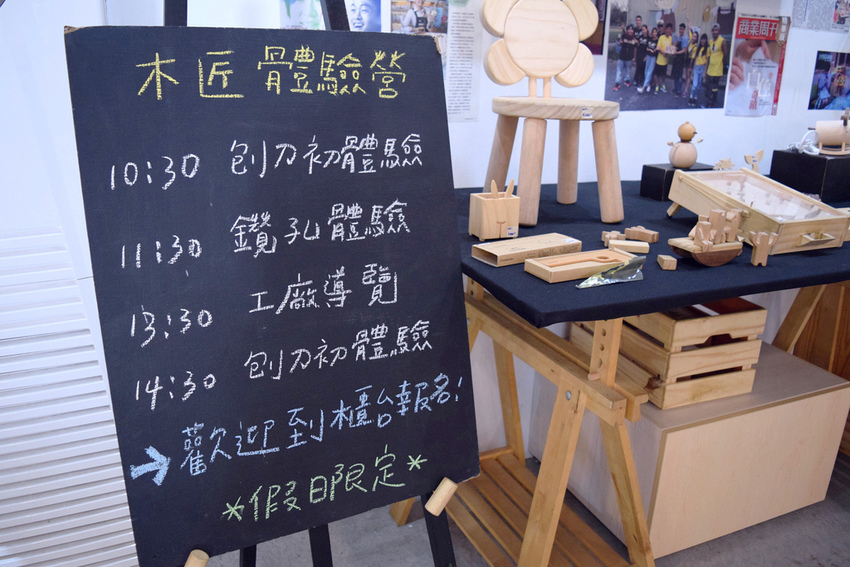 木匠體驗營
10:30 刨刀初體驗
11:30 鑽孔體驗
13:30 工廠導覽
14:30 刨刀初體驗
→ 歡迎到櫃台報名!
*假日限定*
商業周刊